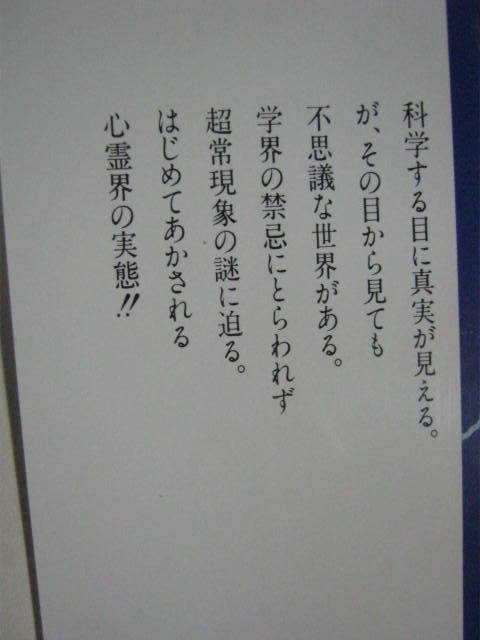 科学する目に真実が見える。
が、その目から見ても
不思議な世界がある。
学界の禁忌にとらわれず
超常現象の謎に迫る。
はじめてあかされる
心霊界の実態!!